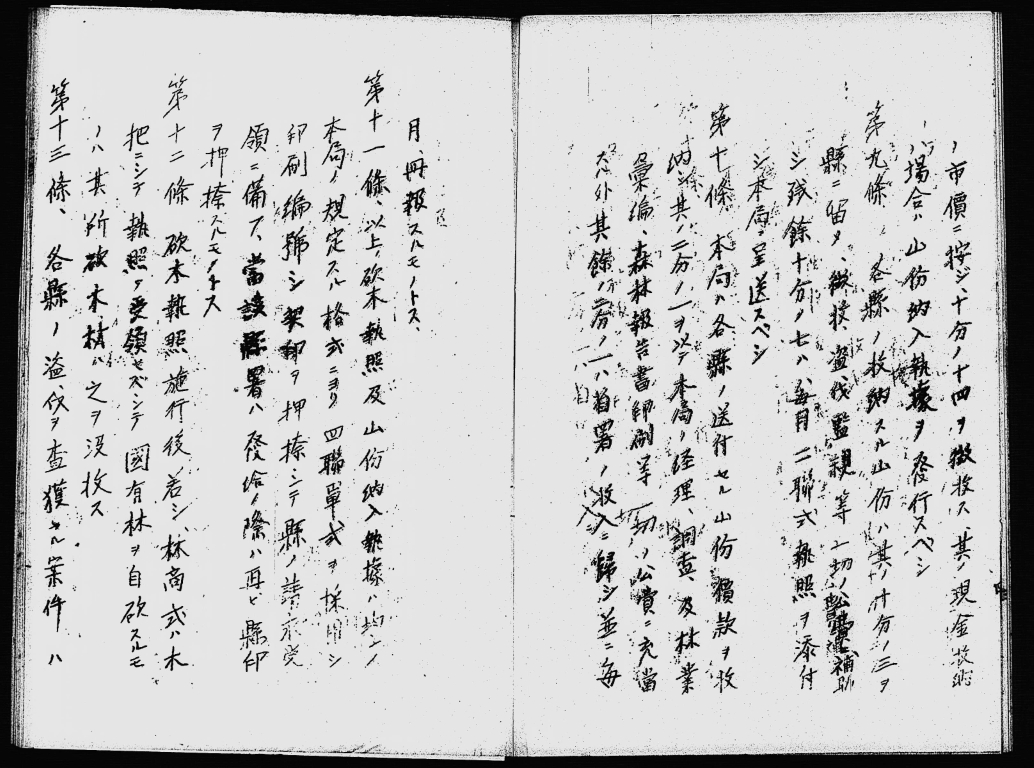 ノ市價ニ按ジ、十分ノ十四ヲ徴收ス、其ノ現金收納
ノ場合ハ山份納入執據ヲ發行スベシ
第九條 各縣ノ收納スル山份ハ其ノ十分ノ三ヲ
縣ニ留メ、徴收、盗伐監視等一切ノ公費補助
シ残餘十分ノ七ハ、毎月二聯式執照ヲ添付
シ本局ニ呈送スベシ
第十條 本局ハ各縣ノ送付セル山份價款ヲ收
納シ其ノ二分ノ一ヲ以テ本局ノ経理、調査、及林業
彙編、森林報告書印刷等一切ノ公費ニ充當
外其ノ餘ノ二分ノ一ハ省署ノ收入ニ歸シ並ニ毎
月、冊報スルモノトス、
第十一條、以上ノ砍木執照及山份納入執據ハ均シク
本局ノ規定スル格式ニヨリ四聯單式ヲ採用シ
印刷編號シ契印ヲ押捺シテ縣ノ請求受
領ニ備フ、當該縣署ハ發給ノ際ハ再ビ縣印
ヲ押捺スルモノトス
第十二條 砍木執照施行後若シ、林商或ハ木
把ニシテ執照ヲ受領セズシテ國有林ヲ自砍スルモ
ノハ其所砍木植ハ之ヲ没收ス
第十三條、各縣ノ盗伐ヲ査獲セル案件ハ